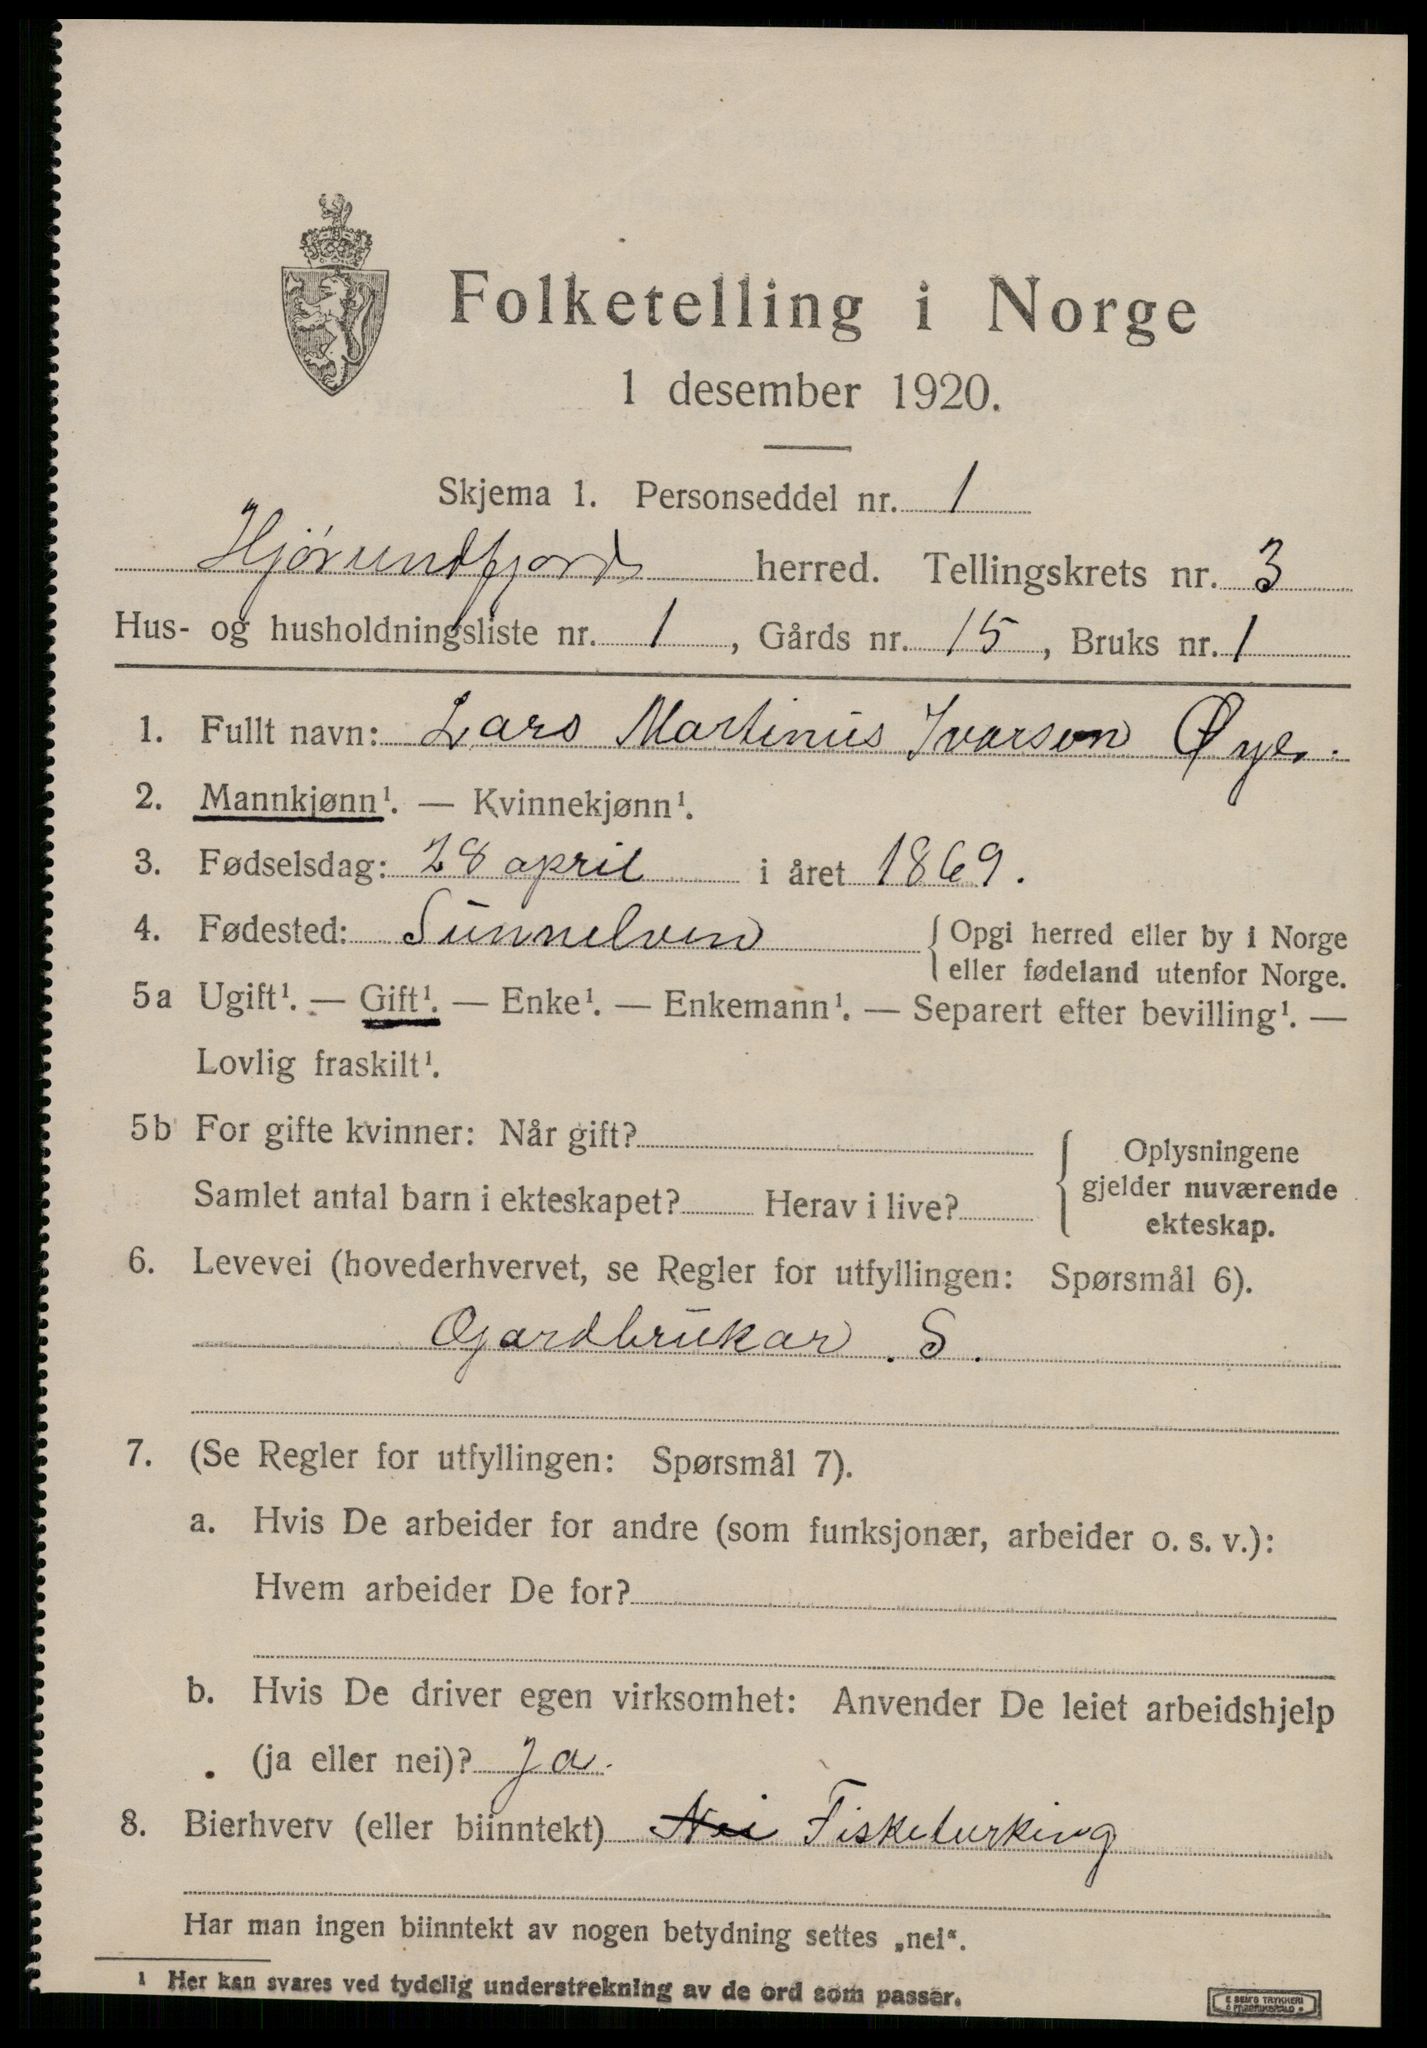 Folketelling i Norge
1 desember 1920.
Skjema 1. Personseddel nr. 1
Hjørundfjord herred. Tellingskrets nr. 3
Hus- og husholdningsliste nr. 1, Gårds nr. 15, Bruks nr. 1
1. Fullt navn: Lars Martinus Ivarson Øye.
2. Mannkjønn¹. — Kvinnekjønn¹.
3. Fødselsdag: 28 april i året 1869.
4. Fødested: Sunnelven { Opgi herred eller by i Norge
eller fødeland utenfor Norge.
5a Ugift¹. — Gift¹. — Enke¹. — Enkemann¹. — Separert efter bevilling¹. —
Lovlig fraskilt¹.
5b For gifte kvinner: Når gift?
Samlet antal barn i ekteskapet? Herav i live?
{ Oplysningene
gjelder nuværende
ekteskap.
6. Levevei (hovederhvervet, se Regler for utfyllingen: Spørsmål 6).
Gardbrukar . S.
7. (Se Regler for utfyllingen: Spørsmål 7).
a. Hvis De arbeider for andre (som funksjonær, arbeider o. s. v.):
Hvem arbeider De for?
b. Hvis De driver egen virksomhet: Anvender De leiet arbeidshjelp
(ja eller nei)? Ja.
8. Bierhverv (eller biinntekt) Nei Fisketurking
Har man ingen biinntekt av nogen betydning settes „nei“.
¹ Her kan svares ved tydelig understrekning av de ord som passer.
E SEM'S TRYKKERI